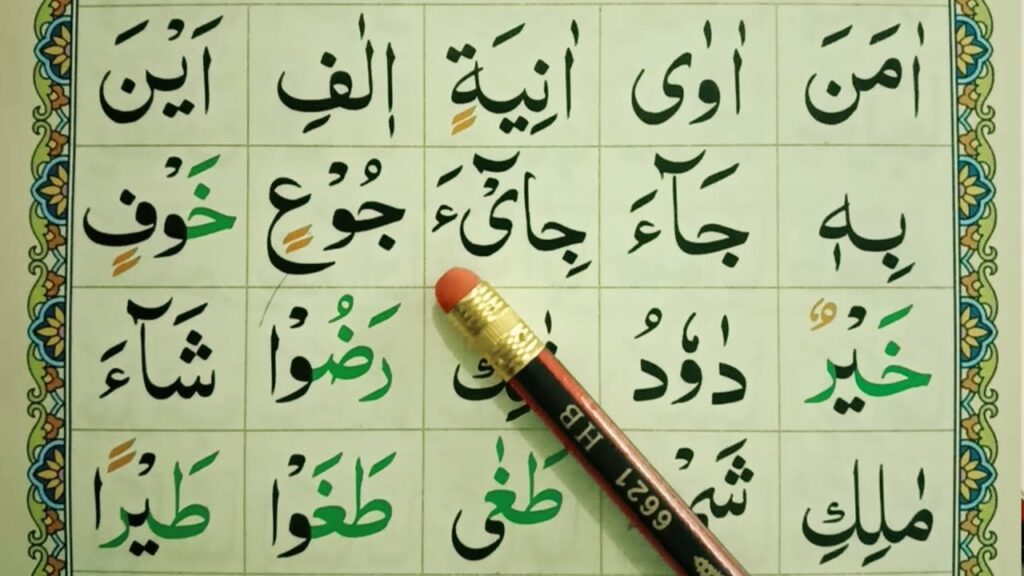 اٰمَنَ اٰوٰى اٰنِيَةٍ اٖلٰفِ اَيْنَ
بِهٖ جَآءَ جِاىْٓءَ جُوْعٍ خَوْفٍ
خَيْرٌ دَاوٗدُ رَضُوْا شَآءَ
مٰلِكِ طَغٰى طَغَوْا طَيْرًا
HB 6621